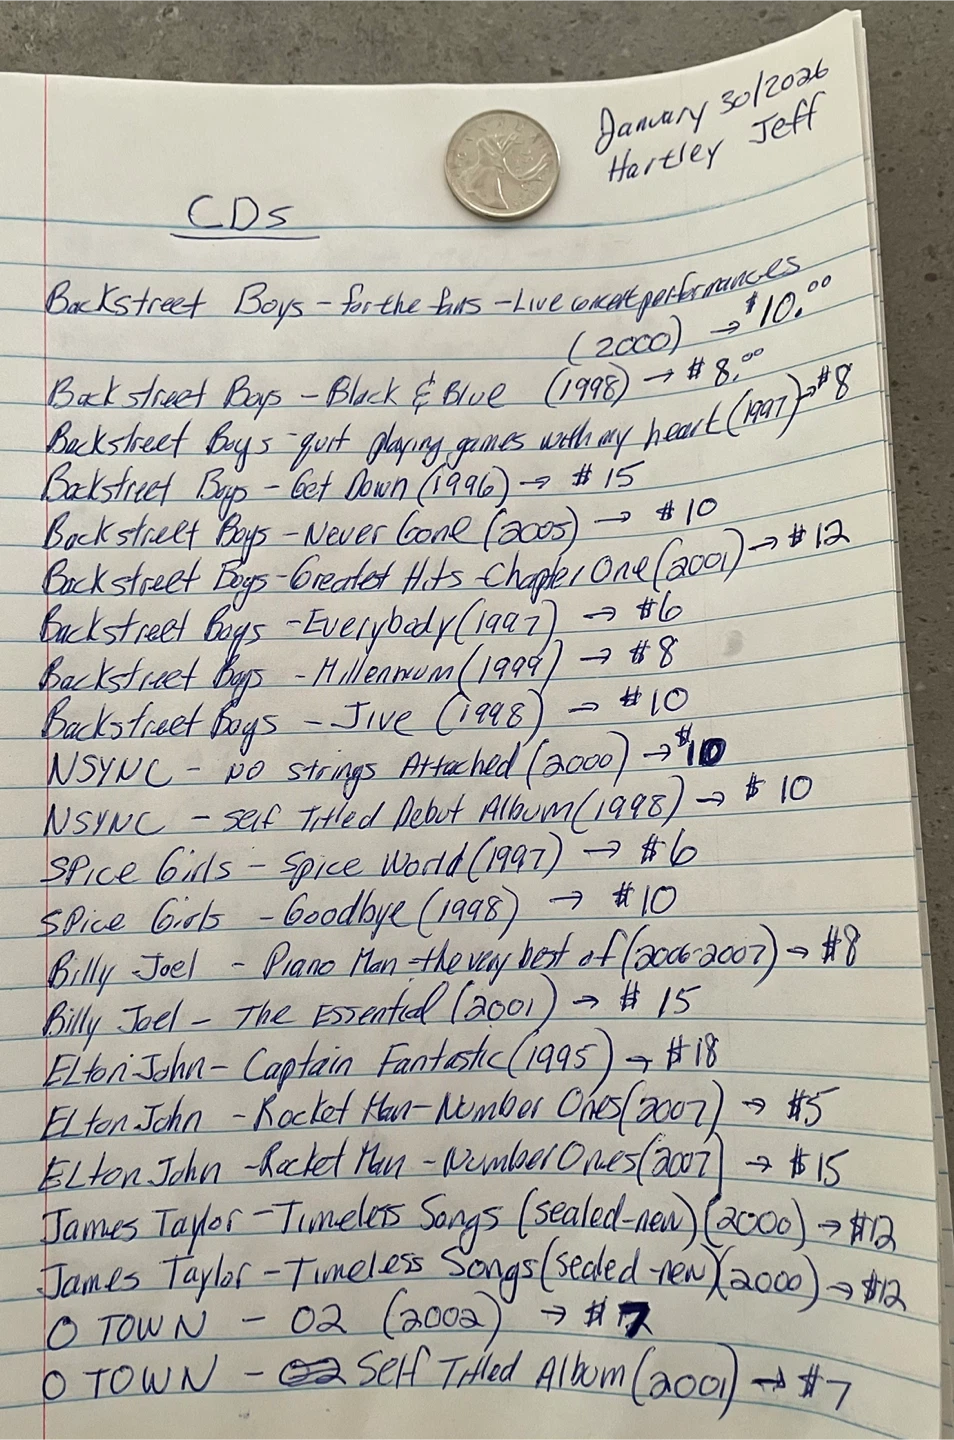 January 30/2026
Hartley Jeff
CDs
Backstreet Boys - for the fans - Live concert performances
(2000) → $10.00
Backstreet Boys - Black & Blue (1998) → $8.00
Backstreet Boys - quit playing games with my heart (1997) → $8
Backstreet Boys - Get Down (1996) → $15
Backstreet Boys - Never Gone (2005) → $10
Backstreet Boys - Greatest Hits - Chapter One (2001) → $12
Backstreet Boys - Everybody (1997) → $6
Backstreet Boys - Millennium (1999) → $8
Backstreet Boys - Jive (1998) → $10
NSYNC - No strings Attached (2000) → $10
NSYNC - Self Titled Debut Album (1998) → $10
SPice Girls - Spice World (1997) → $6
SPice Girls - Goodbye (1998) → $10
Billy Joel - Piano Man - the very best of (2006-2007) → $8
Billy Joel - The Essential (2001) → $15
Elton John - Captain Fantastic (1995) → $18
Elton John - Rocket Man - Number Ones (2007) → $5
Elton John - Rocket Man - Number Ones (2007) → $15
James Taylor - Timeless Songs (sealed-new) (2000) → $12
James Taylor - Timeless Songs (sealed-new) (2000) → $12
O TOWN - O2 (2002) → $7
O TOWN - Self Titled Album (2001) → $7